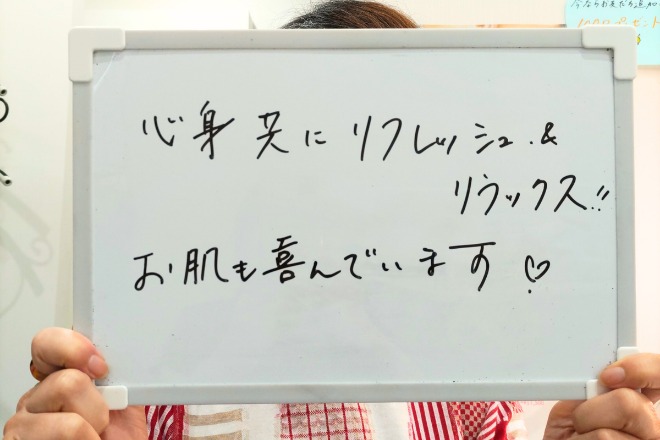 心身共にリフレッシュ.&
リラックス!!
お肌も喜んでいます♡